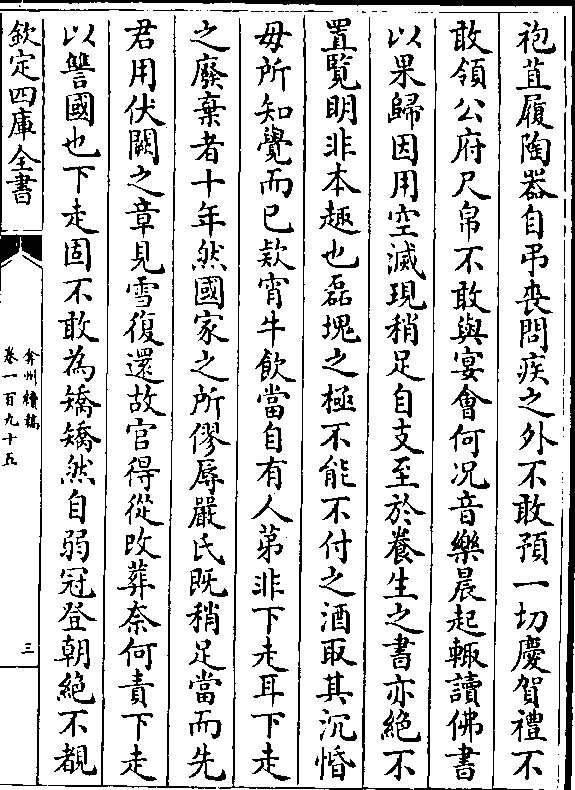 袍苴履陶器自弔喪問疾之外不敢預一切慶賀禮不
敢領公府尺帛不敢與宴會何况音樂晨起輙讀佛書
以果歸因用空滅現稍足自支至於養生之書亦絶不
置覧明非本趣也磊塊之極不能不付之酒取其沉惛
毋所知覺而已欵宵牛飲當自有人苐非下走耳下走
之廢棄者十年然國家之所僇辱嚴氏既稍足當而先
君用伏闕之章見雪復還故官得從改葬奈何責下走
以讐國也下走固不敢為矯矯然自弱冠登朝絶不覩
欽定四庫全書
弇州續稿
卷一百九十五
三